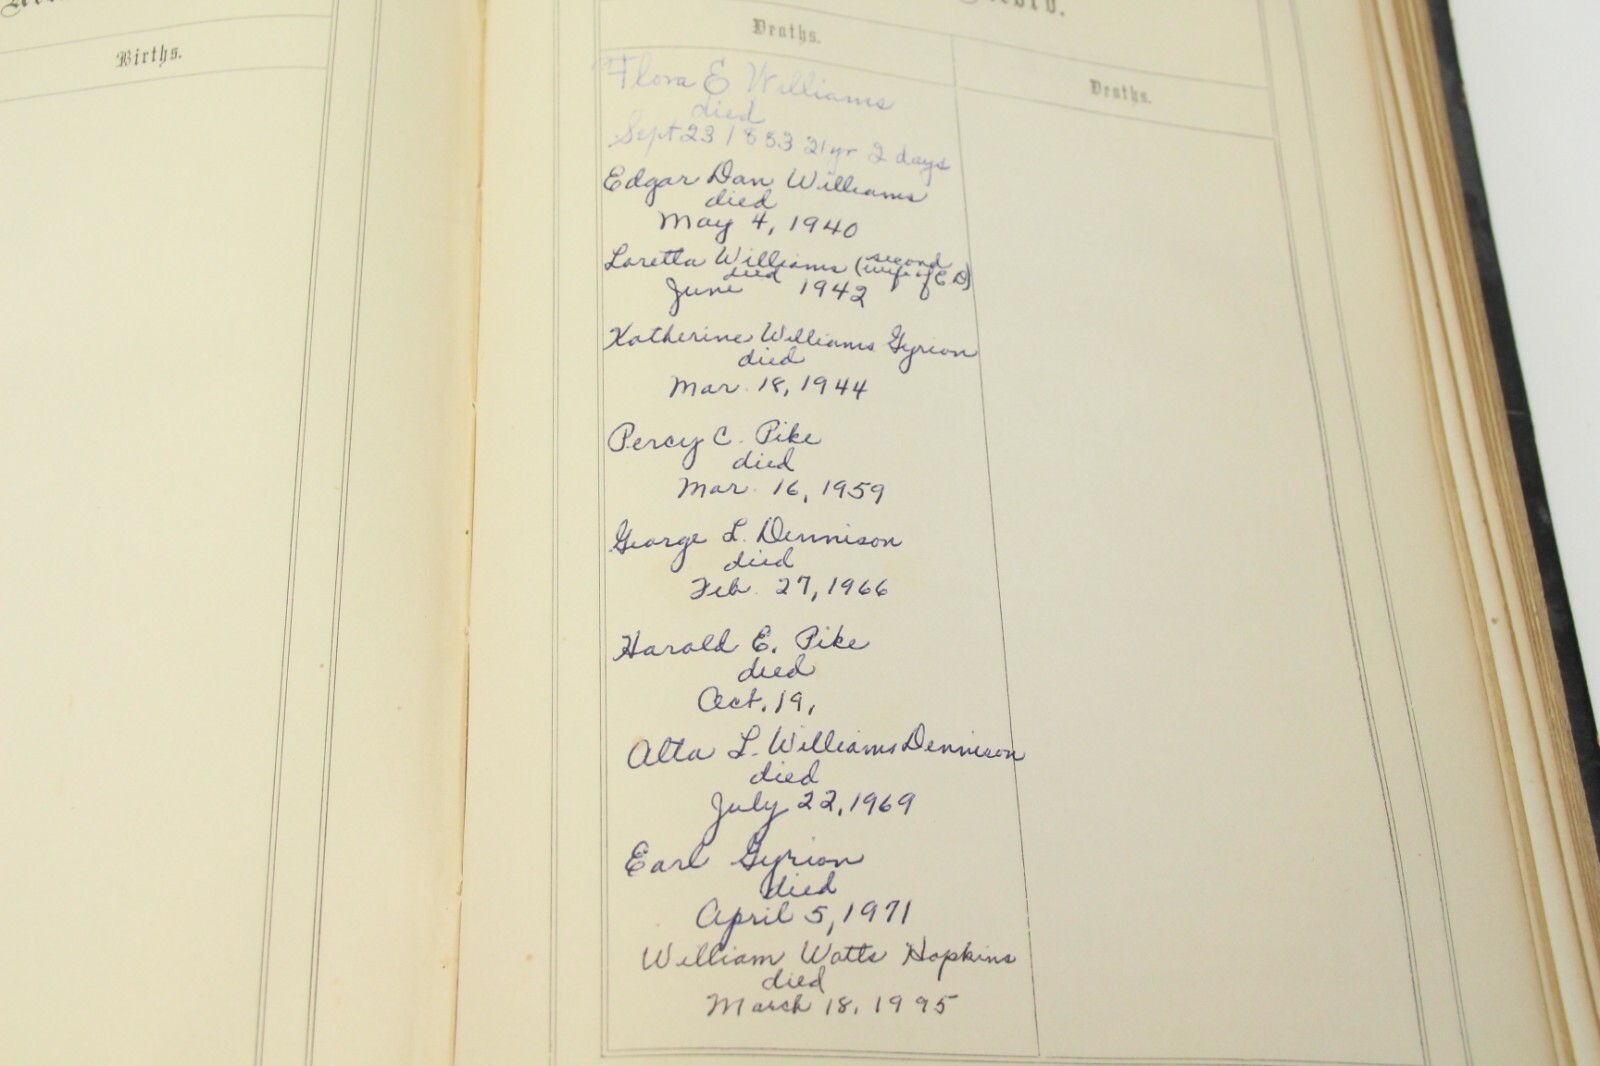 Births.
Deaths.
Deaths.
Flora E Williams
died
Sept 23 1883 21yr 2 days
Edgar Dan Williams
died
May 4, 1940
Loretta Williams (second
wife of E D)
died
June 1942
Katherine Williams Gyrion
died
Mar. 18, 1944
Percy C. Pike
died
Mar. 16, 1959
George L. Dennison
died
Feb. 27, 1966
Harold E. Pike
died
Oct. 19,
Alta L. Williams Dennison
died
July 22, 1969
Earl Gyrion
died
April 5, 1971
William Watts Hopkins
died
March 18, 1995